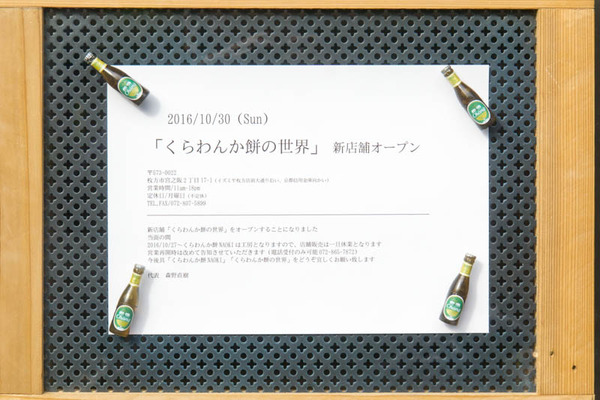 2016/10/30 (Sun)
「くらわんか餅の世界」 新店舗オープン
〒573-0022
枚方市宮之阪2丁目17-1
営業時間/11am-18pm
定休日/月曜日(不定休)
TEL,FAX/072-807-5800
新店舗「くらわんか餅の世界」をオープンすることになりました
当面の間
2016/10/27～くらわんか餅NAOKIは工房となりますので、店舗販売は一旦休業となります
営業再開時は改めて告知させていただきます(電話受付のみ可能 072-865-7872)
今後共「くらわんか餅NAOKI」「くらわんか餅の世界」をどうぞ宜しくお願い致します
代表 森野直樹